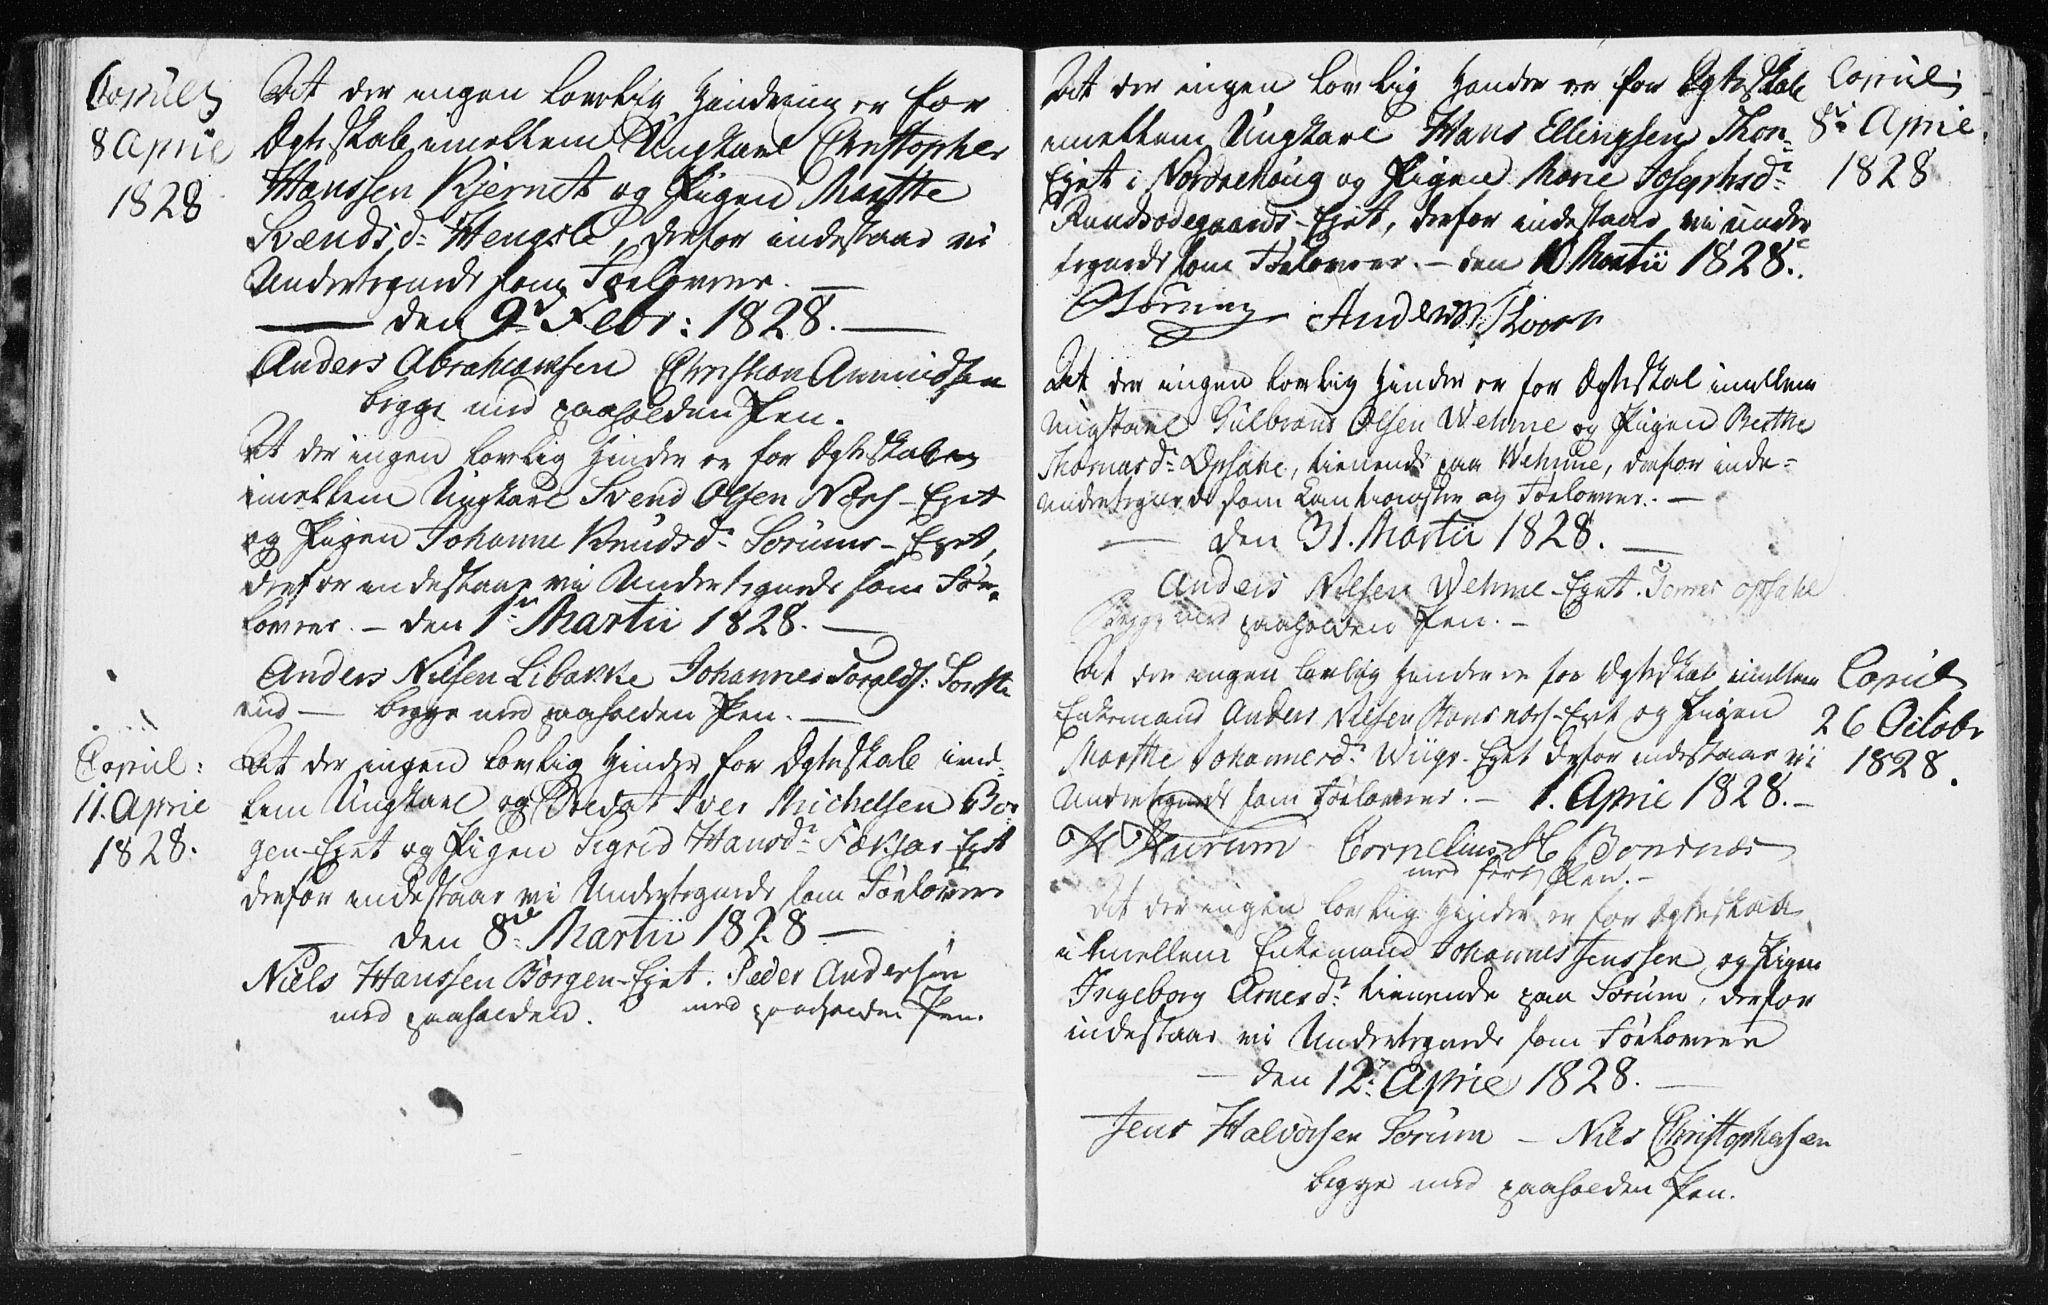 Copul:
8 April
1828
At der ingen lovlig Hindring er for
Ægteskab imellem Ungkarl Christopher
Hanssen Kjernet og Pigen Marthe
Svendsd: Hengsle, derfor indestaar vi
Undertegnede som Forlovere. —
— den 9de Febr: 1828. —
Anders Abrahamsen Christian Amundsen
begge med paaholden Pen.
At der ingen lovlig Hinder er for Ægteskab
imellem Ungkarl Svend Olsen Næss-Eyet
og Pigen Johanne Knudsdr Sørums-Eyet,
derfor indestaar vi Undertegnede som For-
lovere. — den 1ste Martii 1828. —
Anders Nilsen Libakke Johannes
rud — begge med paaholden Pen. —
Copul:
11. April
1828.
At der ingen lovlig Hinder for Ægteskab imel-
lem Ungkarl og Iver Michelsen Bor-
gen-Eyet og Pigen Sigrid Hansdr Eyet
derfor indestaar vi Undertegnede som Forlovere
— den 8de Martii 1828 —
Niels Hanssen Borgen-Eyet. Peder Andersøn
med paaholden. med paaholden Pen.
At der ingen lovlig Hinder er for Ægteskab
imellem Ungkarl Hans Ellingsen Thon-
Eyet i Norderhoug og Pigen Marie Josephsdr
Randsødegaards-Eyet, derfor indestaar vi under
tegnede som Forlovere. — den 10 Martii 1828.
Anders
Copul:
8de April.
1828
At der ingen lovlig Hinder er for Ægteskab imellem
Ungkarl Gulbrand Olsen Wehme og Pigen Berthe
Thomasdr Opsahl, tienende paa Wehme, derfor inde-
Undertegnede som Cautionister og Forlovere. —
— den 31. Martii 1828. —
Anders Nilsen Wehme-Eyet. opsahl
Begge med paaholden Pen. —
At der ingen lovlig Hinder er for Ægteskab imellem
Enkemand Anders Nilsen Eyet og Pigen
Marthe Johannesdr Wiigs-Eyet derfor indestaar vi
Undertegnede som Forlovere. — 1. April 1828. —
Cornelius H Bonsnæs
med ført Pen. —
Copul:
26 Octobr
1828.
At der ingen lovlig Hinder er for Ægteskab
imellem Enkemand Johannes Jenssen og Pigen
Ingeborg Arnesdr tienende paa Sørum, derfor
indestaar vi Undertegnede som Forlovere
— den 12. April 1828. —
Jens Halvorsen Sørum — Nils Christophersen
begge med paaholden Pen.